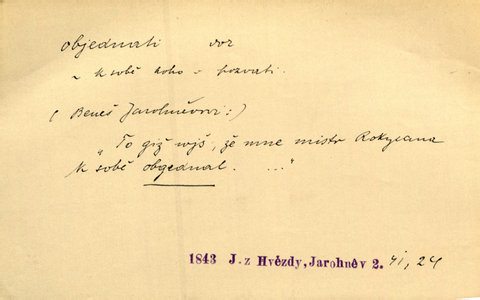 objednati dok
~ k sobě koho = pozvati.
( Beneš Jarohněvovi:)
„To giž wjš, že mne mistr Rokycana
k sobě obgednal. ..."
1843 J. z Hvězdy, Jarohněv 2. 41, 24